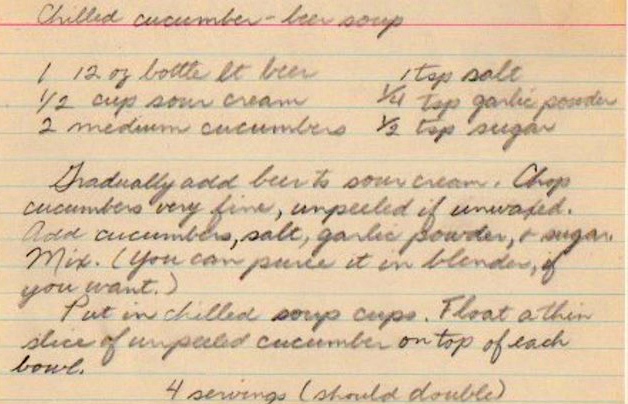 Chilled cucumber-beer soup
1 12 oz bottle lt beer 1 tsp salt
1/2 cup sour cream 1/4 tsp garlic powder
2 medium cucumbers 1/2 tsp sugar
Gradually add beer to sour cream. Chop
cucumbers very fine, unpeeled if unwaxed.
Add cucumbers, salt, garlic powder, + sugar.
Mix. (You can puree it in blender, if
you want.)
Put in chilled soup cups. Float a thin
slice of unpeeled cucumber on top of each
bowl.
4 servings (should double)